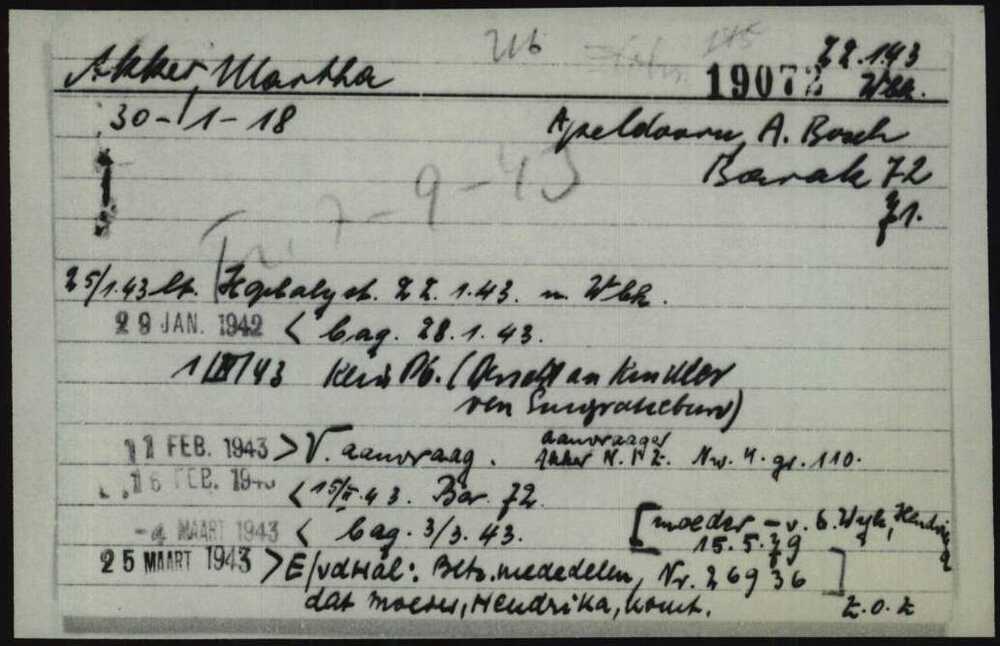 216 175 22.1.43
Akker, Martha 19072 Wbk.
30-1-18 Apeldoorn, A. Bosch
Barak 72
Tr. 7-9-43
25/1.43 lt. 22.1.43. n. Wbk.
29 JAN. 1942 < bag. 28.1.43.
1/III/43 Kein Pb. (
von
11 FEB. 1943 > V. aanvraag. aanvrager
Akker Nw. K. gr. 110.
16 FEB. 1943 < 15/II.43. Bar. 72
-4 MAART 1943 < bag. 3/3.43. [moeder - v. d. Wyk, Hendrika
15.5.79
25 MAART 1943 > E/vdHal: Betr. mededelen, Nr. 26936]
dat moeder, Hendrika, komt. Z.O.Z